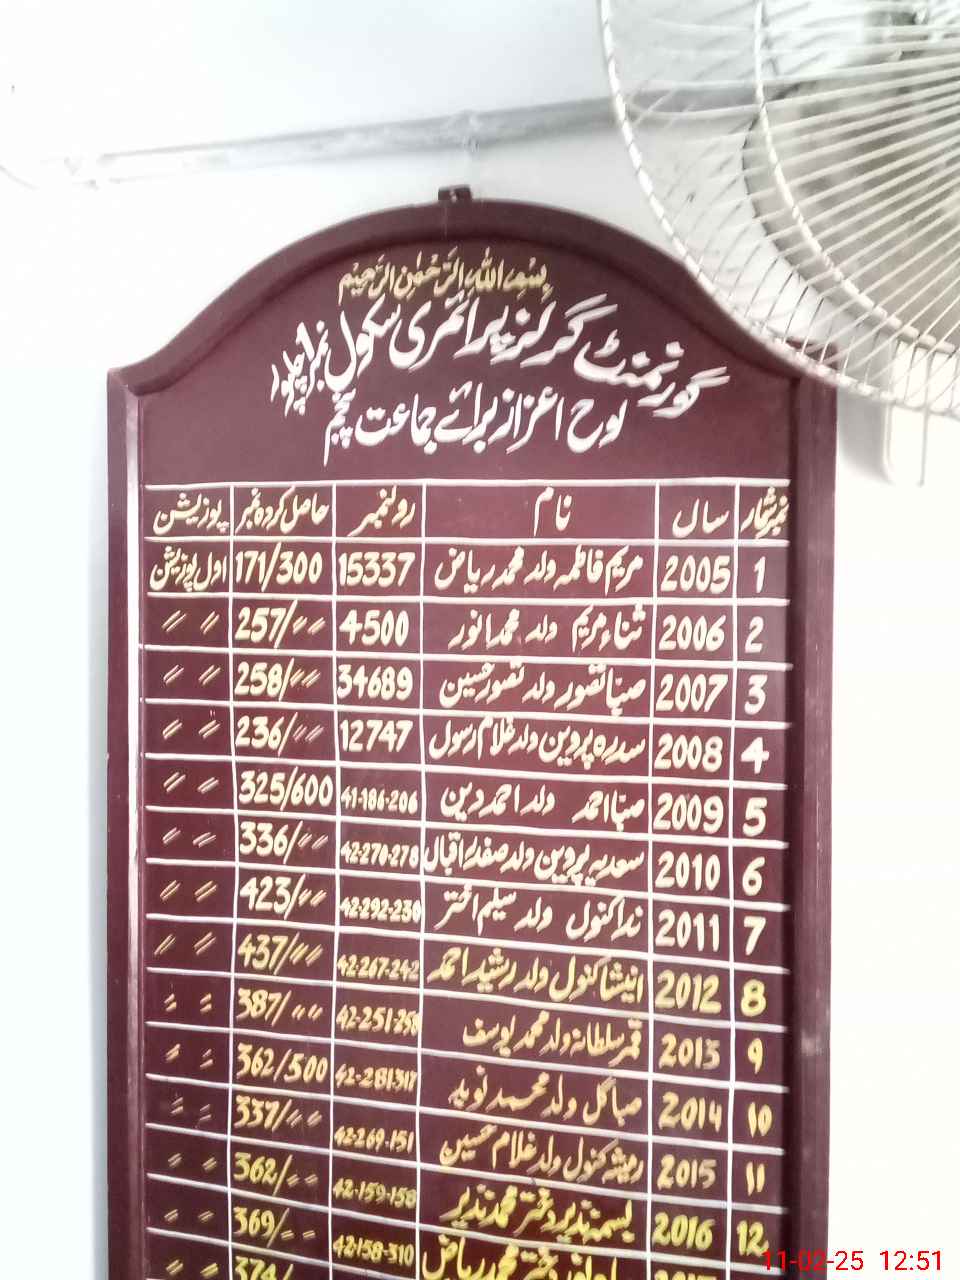 بِسْمِ اللهِ الرَّحْمٰنِ الرَّحِيْمِ
گورنمنٹ گرلز پرائمری سکول نمبر1
لوح اعزاز برائے جماعت پنجم
نمبر شمار سال نام رولنمبر حاصل کردہ نمبر پوزیشن
1 2005 مریم فاطمہ ولد محمد ریاض 15337 171/300 اول پوزیشن
2 2006 ثناء مریم ولد محمد انور 4500 257/〃 〃 〃
3 2007 صبا تصور ولد تصور حسین 34689 258/〃 〃 〃
4 2008 سدرہ پروین ولد غلام رسول 12747 236/〃 〃 〃
5 2009 صبا احمد ولد احمد دین 41-186-206 325/600 〃 〃
6 2010 سعدیہ پروین ولد صفدر اقبال 42-270-278 336/〃 〃 〃
7 2011 ندا کنول ولد سلیم اختر 42-292-230 423/〃 〃 〃
8 2012 انیشا کنول ولد رشید احمد 42-267-242 437/〃 〃 〃
9 2013 قمر سلطانہ ولد محمد یوسف 42-251-258 387/〃 〃 〃
10 2014 صبا گل ولد محمد نوید 42-281-317 362/500 〃 〃
11 2015 رمیثہ کنول ولد غلام حسین 42-269-151 337/〃 〃 〃
12 2016 یسمہ نذیر دختر محمد نذیر 42-159-158 362/〃 〃 〃
محمد ریاض 42-158-310 369/〃 〃 〃
374/
11-02-25 12:51